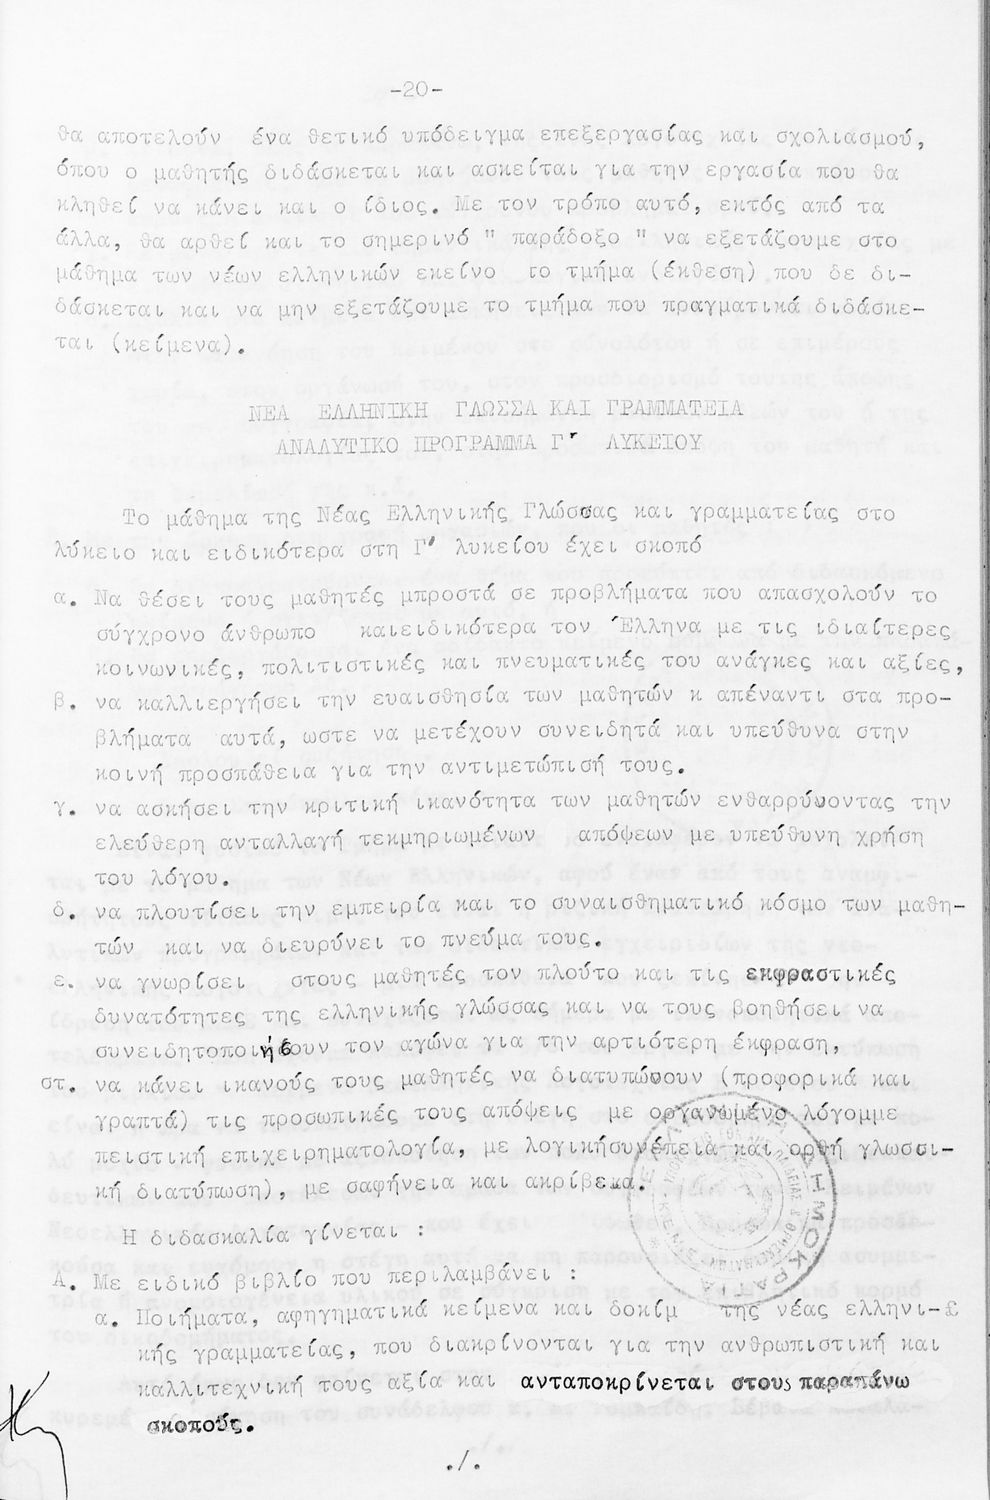 -20-
θα αποτελούν ένα θετικό υπόδειγμα επεξεργασίας και σχολιασμού,
όπου ο μαθητής διδάσκεται και ασκείται για την εργασία που θα
κληθεί να κάνει και ο ίδιος. Με τον τρόπο αυτό, εκτός από τα
άλλα, θα αρθεί και το σημερινό " παράδοξο " να εξετάζουμε στο
μάθημα των νέων ελληνικών εκείνο το τμήμα (έκθεση) που δε δι-
δάσκεται και να μην εξετάζουμε το τμήμα που πραγματικά διδάσκε-
ται (κείμενα).
ΝΕΑ ΕΛΛΗΝΙΚΗ ΓΛΩΣΣΑ ΚΑΙ ΓΡΑΜΜΑΤΕΙΑ
ΑΝΑΛΥΤΙΚΟ ΠΡΟΓΡΑΜΜΑ Γ' ΛΥΚΕΙΟΥ
Το μάθημα της Νέας Ελληνικής Γλώσσας και γραμματείας στο
λύκειο και ειδικότερα στη Γ' λυκείου έχει σκοπό
α. Να θέσει τους μαθητές μπροστά σε προβλήματα που απασχολούν το
σύγχρονο άνθρωπο καιειδικότερα τον Έλληνα με τις ιδιαίτερες
κοινωνικές, πολιτιστικές και πνευματικές του ανάγκες και αξίες,
β. να καλλιεργήσει την ευαισθησία των μαθητών κ απέναντι στα προ-
βλήματα αυτά, ωστε να μετέχουν συνειδητά και υπεύθυνα στην
κοινή προσπάθεια για την αντιμετώπισή τους.
γ. να ασκήσει την κριτική ικανότητα των μαθητών ενθαρρύνοντας την
ελεύθερη ανταλλαγή τεκμηριωμένων απόψεων με υπεύθυνη χρήση
του λόγου.
δ. να πλουτίσει την εμπειρία και το συναισθηματικό κόσμο των μαθη-
τών και να διευρύνει το πνεύμα τους.
ε. να γνωρίσει στους μαθητές τον πλούτο και τις εκφραστικές
δυνατότητες της ελληνικής γλώσσας και να τους βοηθήσει να
συνειδητοποιήσουν τον αγώνα για την αρτιότερη έκφραση,
στ. να κάνει ικανούς τους μαθητές να διατυπώσουν (προφορικά και
γραπτά) τις προσωπικές τους απόψεις με οργανωμένο λόγομμε
πειστική επιχειρηματολογία, με λογικήσυνέπεια και ορθή γλωσσι-
κή διατύπωση), με σαφήνεια και ακρίβεια.
Η διδασκαλία γίνεται :
Α. Με ειδικό βιβλίο που περιλαμβάνει :
α. Ποιήματα, αφηγηματικά κείμενα και δοκίμ της νέας ελληνι-£
κής γραμματείας, που διακρίνονται για την ανθρωπιστική και
καλλιτεχνική τους αξία και ανταποκρίνεται στους παραπάνω
σκοπούς.
./.